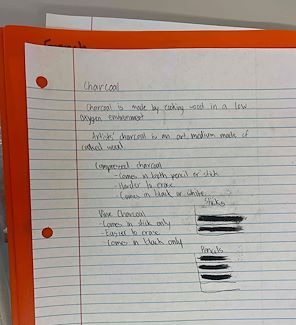 Charcoal
Charcoal is made by cooking wood in a low
oxygen environment
Artists' charcoal is an art medium made of
Compressed charcoal
- Comes in both pencil or stick
- Harder to erase
- Comes in black or white
Sticks
Vine Charcoal
- Comes in stick only
- Easier to erase
- Comes in black only
Pencils